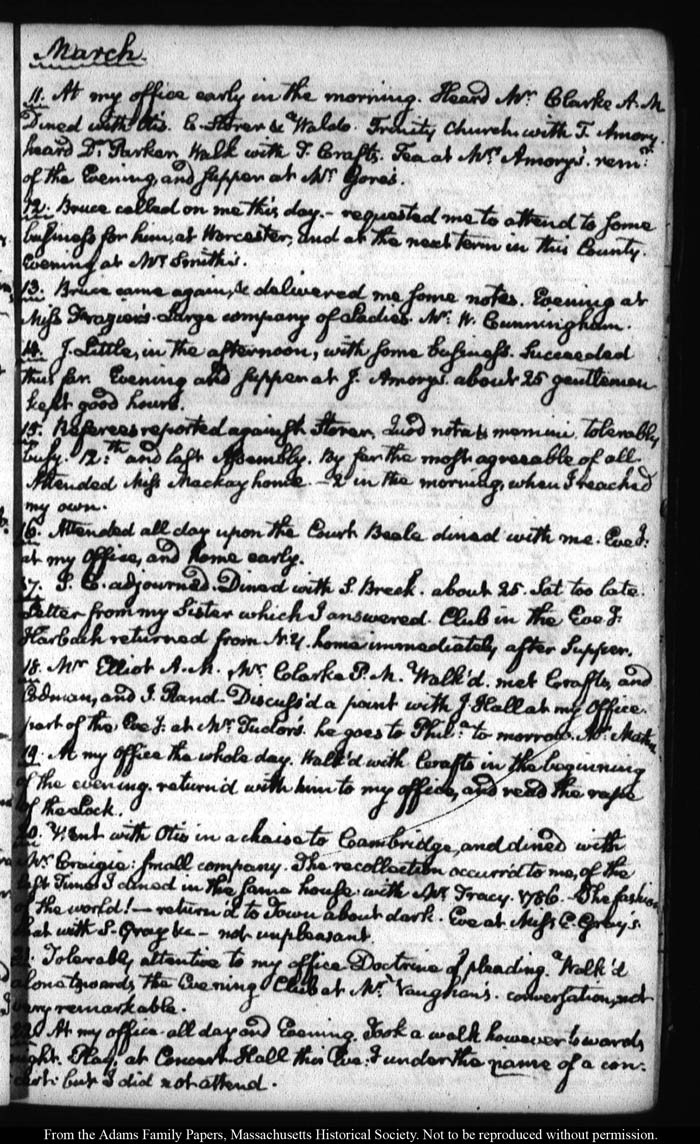 March.
11. At my office early in the morning. Heard Mr. Clarke A.M
Dined with Otis. C. Storer & Waldo. Trinity Church with T. Amory.
heard Dr. Parker, Walk with T. Crafts. Tea at Mr. Amory's. remr.
of the Evening, and supper at Mr. Gore's.
12. Bruce called on me this day. – requested me to attend to some
business for him, at Worcester, and at the next term in this County.
Evening at Mr. Smith's.
13. Bruce came again, & delivered me some notes. Evening at
Miss Frazier's. Large company of Ladies. Mr. W. Cunningham.
14. J. Little, in the afternoon, with some business. Succeeded
thus far. Evening and supper at J. Amory's about 25 gentlemen
kept good hours.
15. Referees reported against Storer. Quod nota & memini. tolerably
busy. 12th. and last Assembly. By far the most agreeable of all.
Attended Miss Mackay home. – 2 in the morning, when I reach'd
my own.
16. Attended all day upon the Court Beale dined with me. Eveg:
at my Office, and home early.
17. S. C. adjourned. Dined with S. Breck. about 25. Sat too late.
Letter from my Sister which I answered. Club in the Eveg:
Harbach returned from N.Y. home immediately after supper.
18. Mr. Elliot A.M. Mr. Clarke P.M. Walk'd. met Crafts, and
Codman, and I. Rand. Discuss'd a point with J. Hall at my Office.
part of the Eveg: at Mr. Tudor's. he goes to Phila. to morrow. Mr.
19. At my office the whole day. Walk'd with Crafts in the beginning
of the evening. return'd with him to my office, and read the rape
of the Lock.
20. Went with Otis in a chaise to Cambridge, and dined with
Mr. Craigie: small company. The recollection occurr'd to me, of the
last Time I dined in the same house with Mr. Tracy. 1786. The fashion
of the world! – return'd to Town about dark. Eve at Miss E. Gray's.
with S. Gray &c – not unpleasant.
21. Tolerably attentive to my office Doctrine of pleading. Walk'd
alone towards the Evening Club at Mr. Vaughan's. conversation, not
very remarkable.
22. At my office all day and Evening. Took a walk however towards
night. Play, at Concert Hall this Eveg under the name of a con-
but I did not attend.
From the Adams Family Papers, Massachusetts Historical Society. Not to be reproduced without permission.